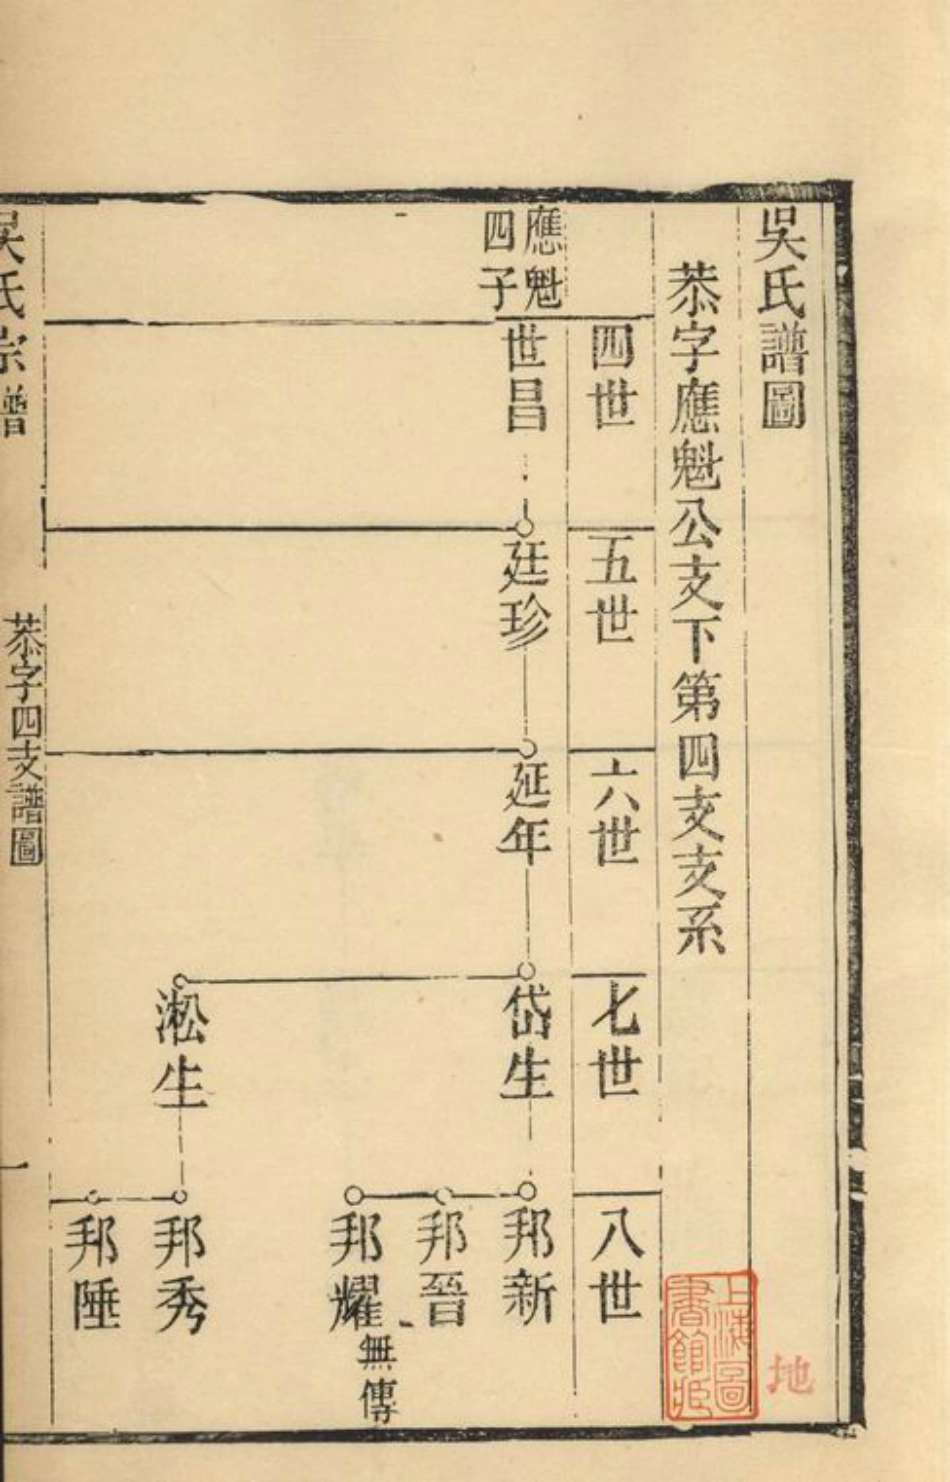 吳氏譜圖
恭字應魁公支下第四支支系
四世
五世
六世
七世
八世
應魁
四子
世昌
廷珍
延年
岱生
邦新
邦晉
邦耀
無傳
淞生
邦秀
邦陲
吳氏宗譜
恭字四支譜圖
一
上海圖
書館藏
地